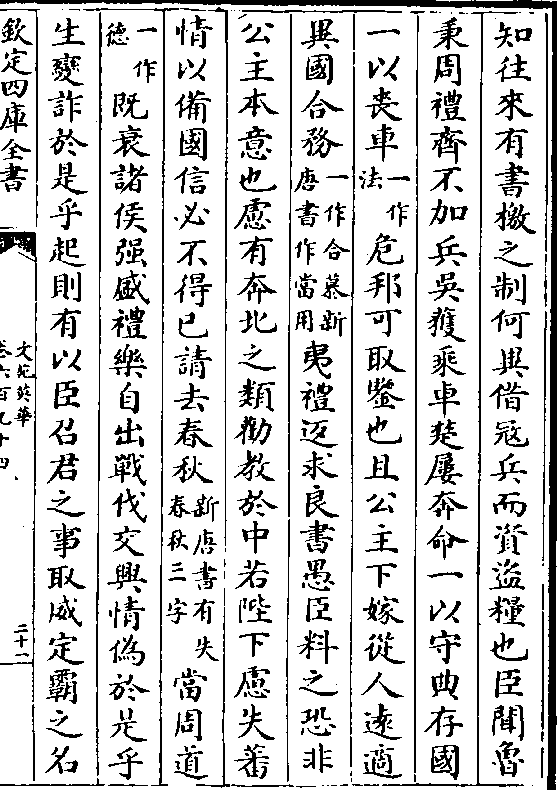 知往來有書檄之制何異借寇兵而資盜糧也臣聞魯
秉周禮齊不加兵吳獲乘車楚屢奔命一以守典存國
一以喪車一作法危邦可取鑒也且公主下嫁從人遠適
異國合務一作合慕新唐書作當用夷禮迺求良書愚臣料之恐非
公主本意也慮有奔北之類勸教於中若陛下慮失蕃
情以備國信必不得已請去春秋新唐書有失春秋三字當周道
一作德既衰諸侯强盛禮樂自出戰伐交興情偽於是乎
生變詐於是乎起則有以臣召君之事取威定霸之名
欽定四庫全書
文苑英華
卷六百九十四
二十一